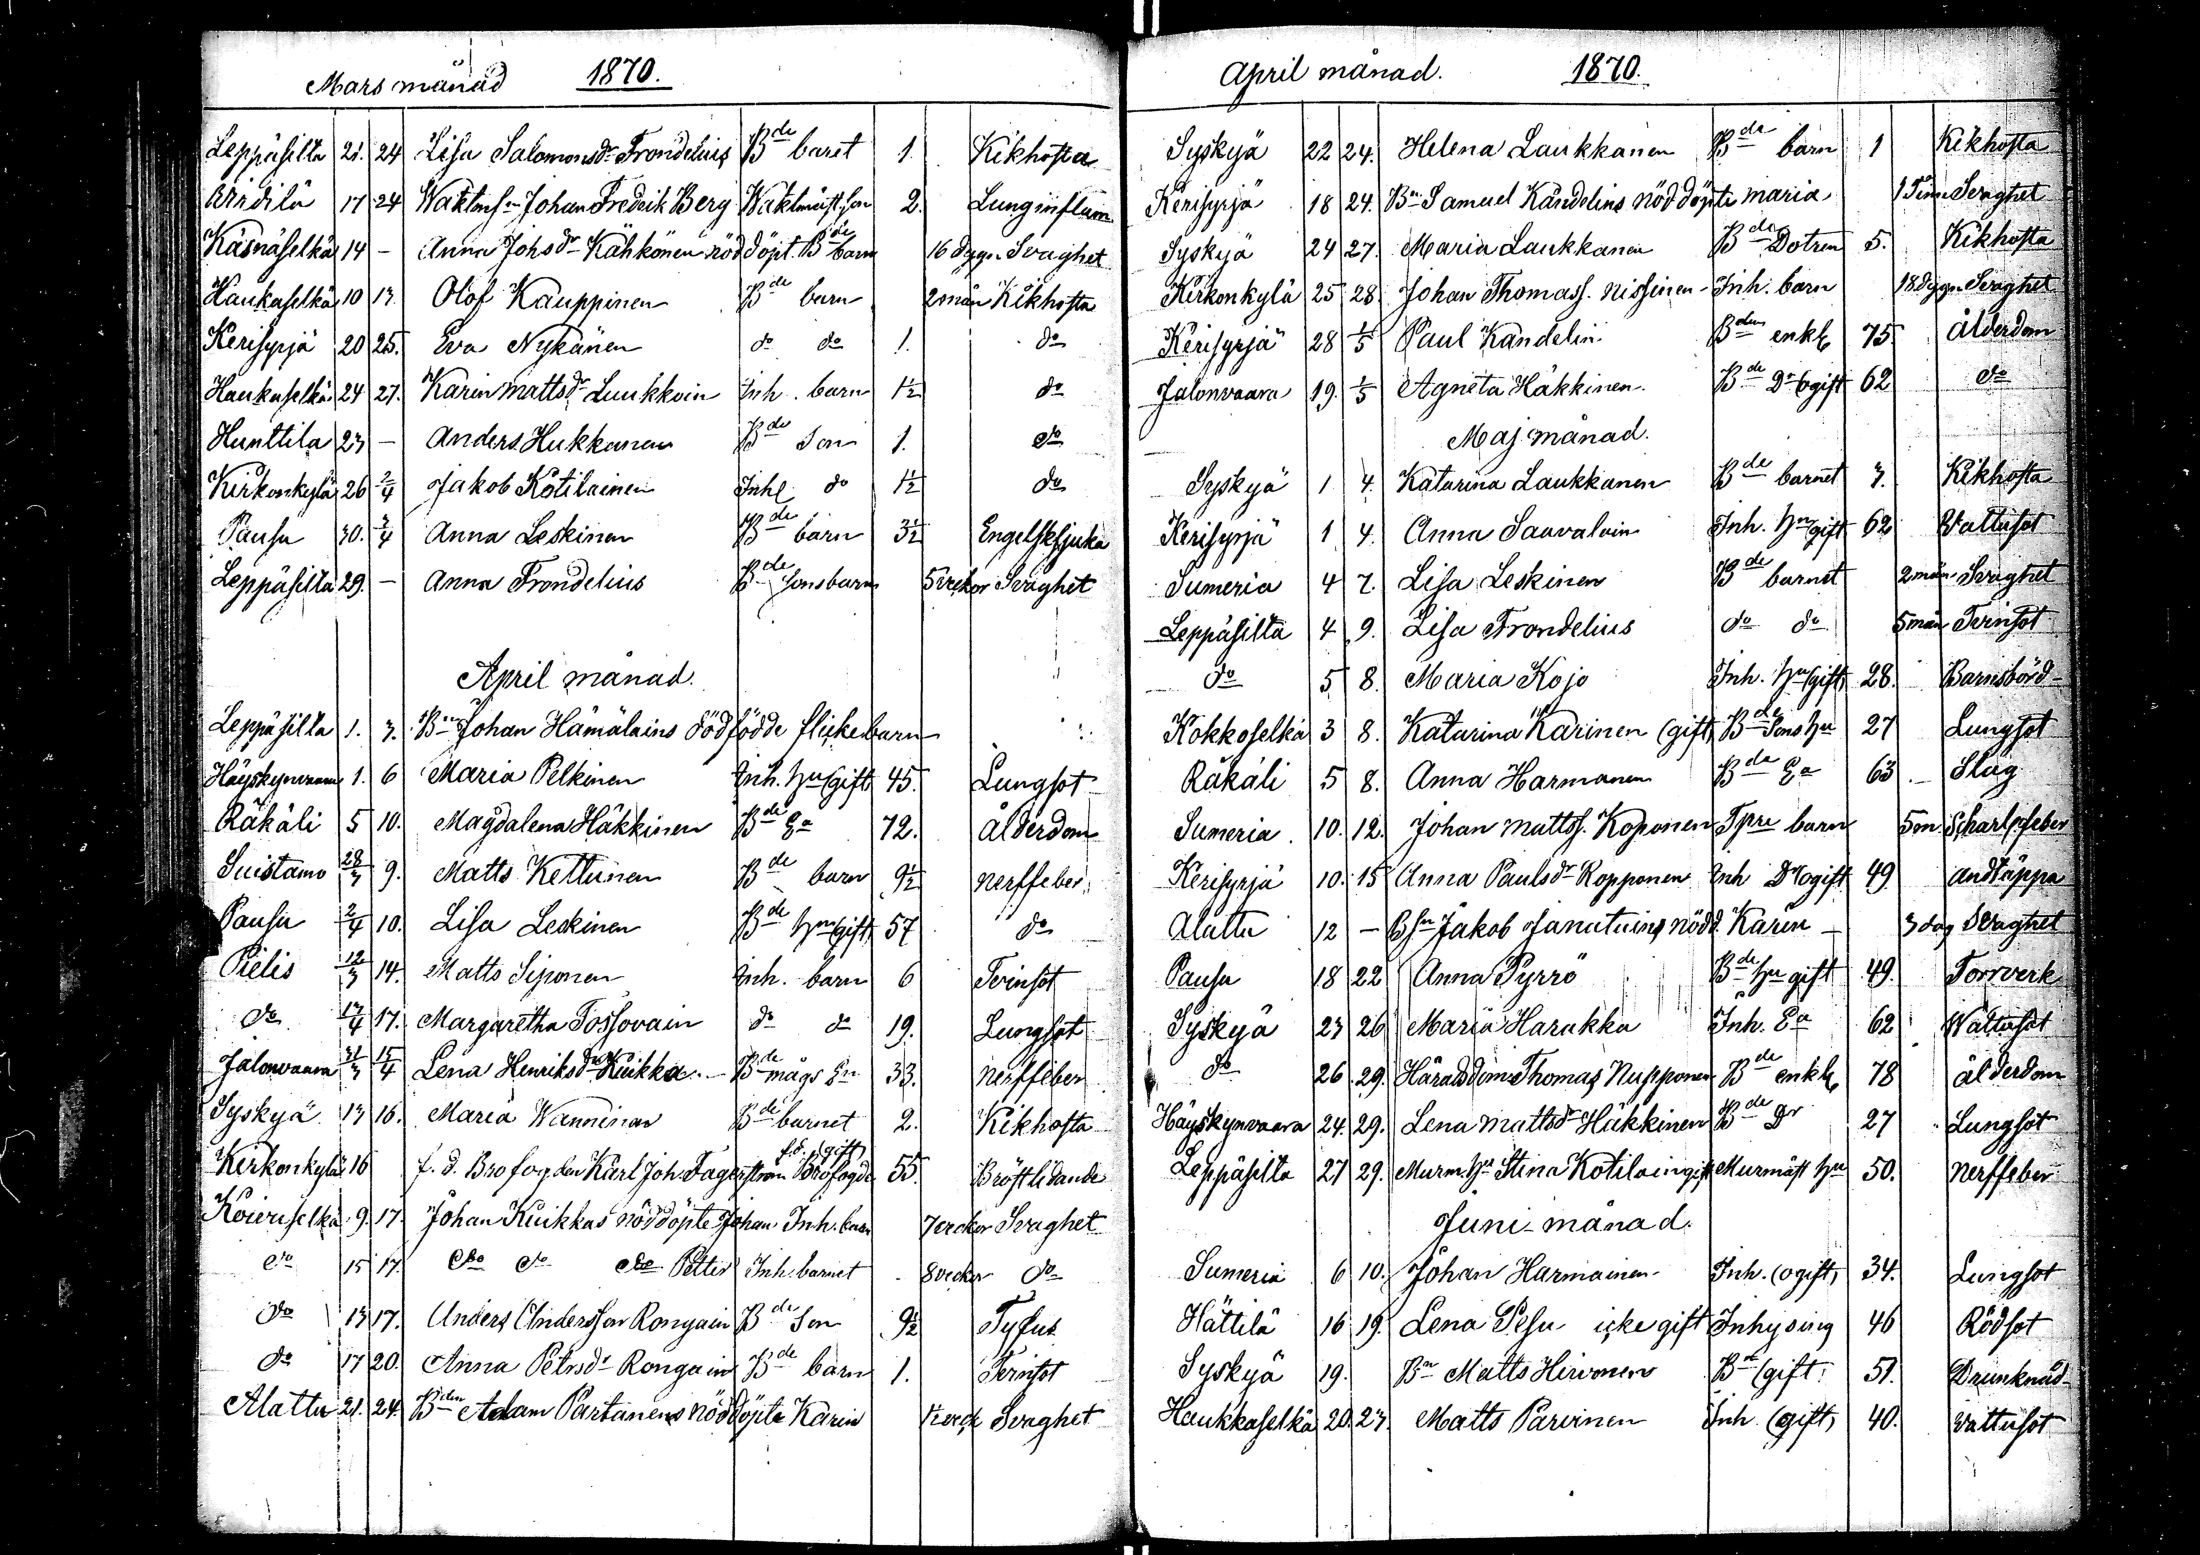 Mars månad 1870.
Leppäsilta 21. 24 Lisa Salomonsdr Frondelius Bde baret 1. Kikhosta
Arridilä 17 24 Waktmsn Johan Fredrik Berg Waktmäst. son 2. Lunginflam
Käsnäselkä 14 - Anna Johsdr Kähkönen nöddöpt. Bde barn 16 dygn Svaghet
Haukaselkä 10 13 Olof Kauppinen Bde barn 2 mån Kikhosta
Kerisyrjä 20 25. Eva Nykänen do do 1. do
Haukaselkä 24 27. Karin Mattsdr Luukkoin Inh. barn 1½ do
Hunttila 23 - Anders Hukkanen Bde Son 1. do
Kirkonkylä 26 2/4 Jakob Kotilainen Inhe do 1½ do
Pausu 30. 3/4 Anna Leskinen Bde barn 3½ Engelsksjuka
Leppäsilta 29. - Anna Frondelius Bde sonsbarn 5 veckor Svaghet
April månad.
Leppäsilta 1. 3. Bn Johan Hämälains dödfödde flickebarn
Häyskynvaara 1. 6 Maria Pelkinen Inh. hu (gift) 45. Lungsot
Räkäli 5 10. Magdalena Häkkinen Bde Ea 72. Ålderdom
Suistamo 28/3 9. Matts Kettunen Bde barn 9½ Nerffeber
Pausu 2/4 10. Lisa Leskinen Bde hu (gift) 57 do
Pielis 12/3 14. Matts Siponen Inh. barn 6 Tvinsot
do 17/4 17. Margaretha Tossovain do do 19. Lungsot
Jalonvaara 31/3 15/4 Lena Henriksdr Kuikka - Bde mågs En 33. Nerffeber
Syskyä 13 16. Maria Wanninen Bde barnet 2. Kikhosta
Kirkonkylä 16 f. d. Brofogden Karl Joh. Fagerström f.d. (gift) Brofogde 55. Bröstlidande
Koivuselkä 9. 17. Johan Kuikkas nöddöpte Johan Inh. barn 7 veckor Svaghet
do 15 17. do do do Petter Inh. barnet 8 veckor do
do 13 17. Anders Andersson Rongain Bde Son 9½ Tyfus
do 17 20. Anna Petrsdr Rongain Bde barn 1. Tvinsot
Alattu 21. 24. Bden Adam Partanens nöddöpte Karin Svaghet
April månad. 1870.
Syskyä 22 24. Helena Laukkanen Bde barn 1 Kikhosta
Kerisyrjä 18 24. Bn Samuel Kandelins nöddöpte Maria 1 Tim Svaghet
Syskyä 24 27. Maria Laukkanen Bde Dotren 5. Kikhosta
Kirkonkylä 25 28 Johan Thomass. Nissinen - Inh. barn 18 dygn Svaghet
Kerisyrjä 28 1/5 Paul Kandelin Bden enkl 75. Ålderdom
Jalonvaara 19. 1/5 Agneta Häkkinen Bde Dr (ogift 62 do
Maj månad.
Syskyä 1 4. Katarina Laukkanen Bde barnet 3. Kikhosta
Kerisyrjä 1 4. Anna Saavalain Inh. hu/gift 62 Vattusot
Sumeria 4 7. Lisa Leskinen Bde barnet 2 mån Svaghet
Leppäsilta 4 9. Lisa Frondelius do do 5 mån Tvinsot
do 5 8. Maria Kojo Inh. hu (gift) 28. Barnsbörd
Kokkoselkä 3 8. Katarina Karinen (gift) Bde Sons hu 27 Lungsot
Räkäli 5 8. Anna Harmanen Bde Ea 63 Slag
Sumeria 10. 12. Johan Mattss. Koponen Tpre barn 5 m. Scharl.feber
Kerisyrjä 10. 15 Anna Paulsdr Ropponen Inh Dr (ogift 49 Andtäppa
Alattu 12 - Bsn Jakob Janatuins nödd. Karin - 3 dag Svaghet
Pausu 18 22 Anna Pyrrö Bde hu gift 49. Torrverk
Syskyä 23 26 Maria Harakka Inh. Ea 62 Wattusot
do 26 29. Häradsdom Thomas Nupponen Bde enkl 78 ålderdom
Häyskynvaara 24. 29. Lena Mattsdr Häkkinen Bde Dr 27 Lungsot
Leppäsilta 27 29. Murm. hu Stina Kotilain gift Murmäst hu 50. Nerffeber
Juni månad.
Sumeria 6 10. Johan Harmainen Inh. (ogift) 34. Lungsot
Hättilä 16 19. Lena Pesu icke gift Inhysing 46 Rödsot
Syskyä 19. Bn Matts Hirvonen Bd (gift) 51. Drunknad
Haukkaselkä 20. 23. Matts Parvinen Inh. (gift) 40. Vattusot